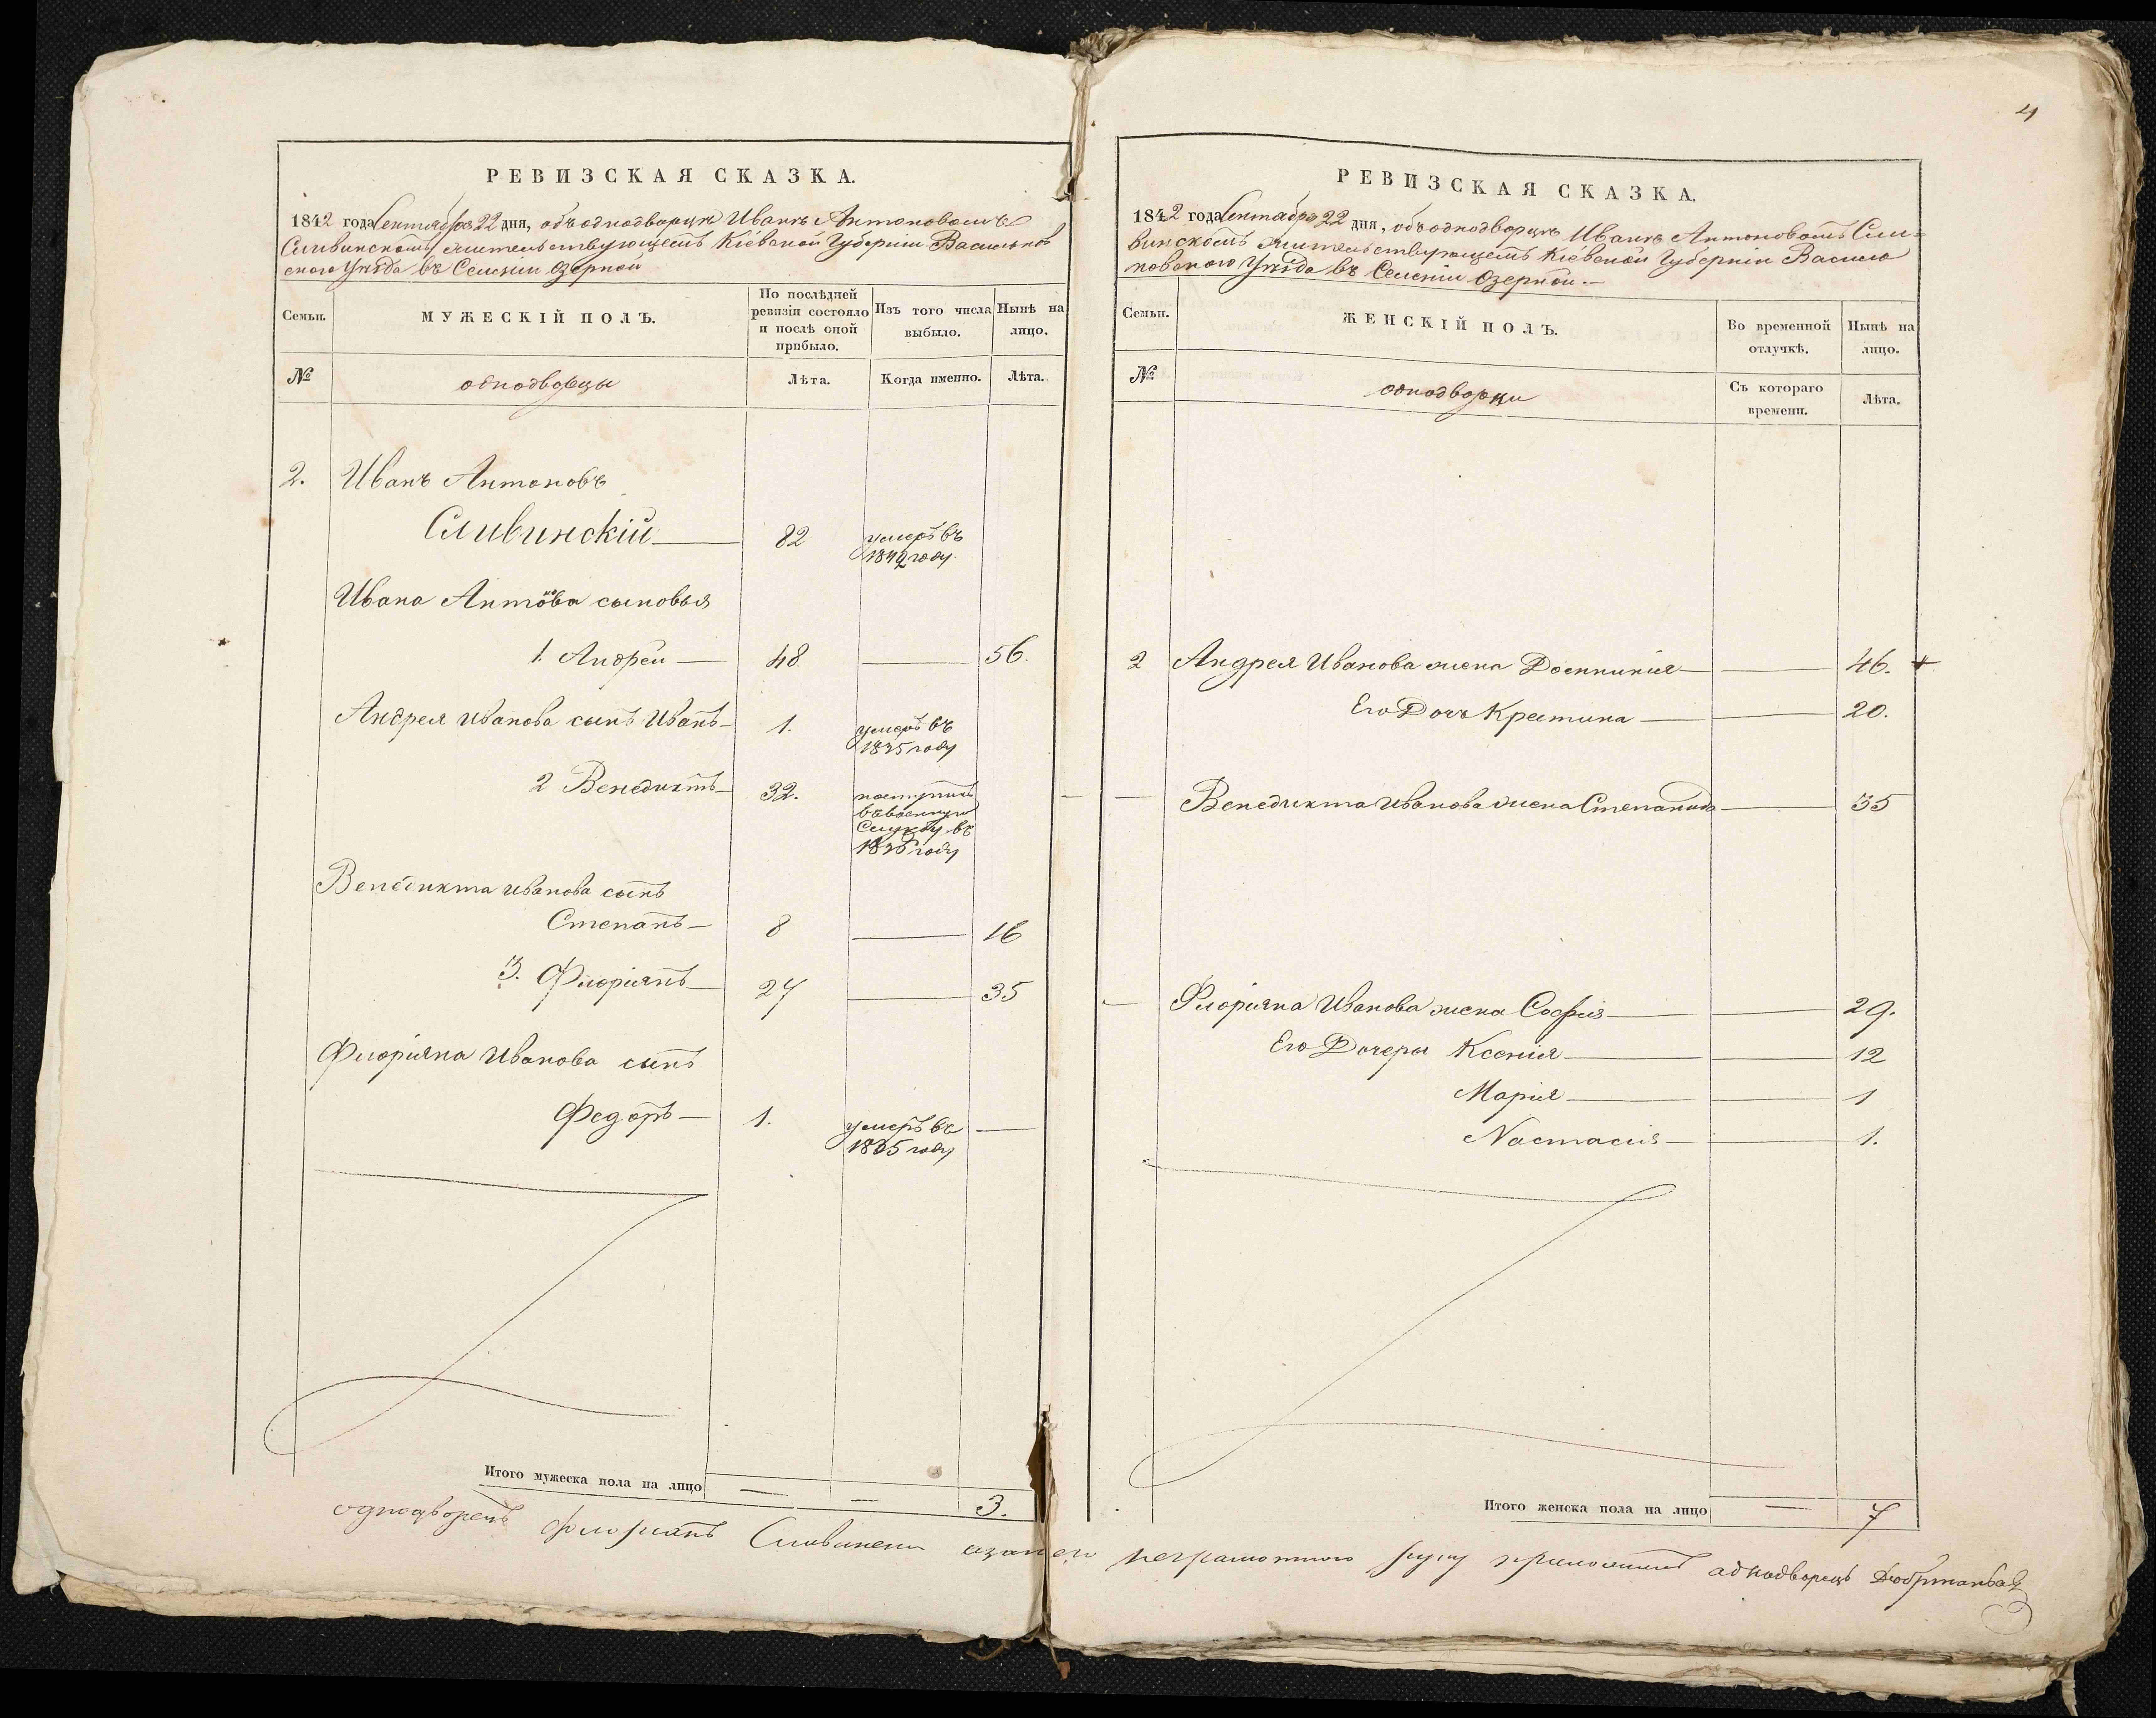 РЕВИЗСКАЯ СКАЗКА.
1842 года Сентября 22 дня, объ однодворце Иване Антоновомъ
Сливинскомъ жительствующемъ Кіевской Губерніи Васильков
ского Уезда въ Селеніи Озерной
Семьи.
МУЖЕСКІЙ ПОЛЪ.
По последней ревизіи состояло и после оной прибыло.
Изъ того числа выбыло.
Ныне на лицо.
№
однодворцы
Лета.
Когда именно.
Лета.
2. Иванъ Антоновъ
Сливинскій 82 умеръ въ
1842 году.
Ивана Антонова сыновья
1. Андрей 48 56.
Андрея Иванова сынъ Иванъ 1. умеръ въ
1835 году
2 Венедиктъ 32. поступилъ
въ военную
Службу въ
году
Венедикта Иванова сынъ
Степанъ 8 16
3. Флоріянъ 27 35
Флоріяна Иванова сынъ
Федоръ 1. умеръ въ
1835 году
Итого мужеска пола на лицо 3.
4
РЕВИЗСКАЯ СКАЗКА.
1842 года Сентября 22 дня, объ однодворце Иване Антоновомъ Сли=
винскомъ жительствующемъ Кіевской Губерніи Василь
ковского Уезда въ Селеніи Озерной.
Семьи.
ЖЕНСКІЙ ПОЛЪ.
Во временной отлучкѣ.
Нынѣ на лицо.
№
однодворци
Съ котораго времени.
Лѣта.
2 Андрея Иванова жена 46. +
Его Дочь Крестина 20.
Венедикта Иванова жена Степанида 35
Флоріяна Иванова жена Софія 29.
Его Дочеры Ксенія 12
Марія 1
Настасія 1.
Итого женска пола на лицо 7
однодворецъ Флориянъ Сливински азанего неграмотного руку приложилъ аднодворецъ